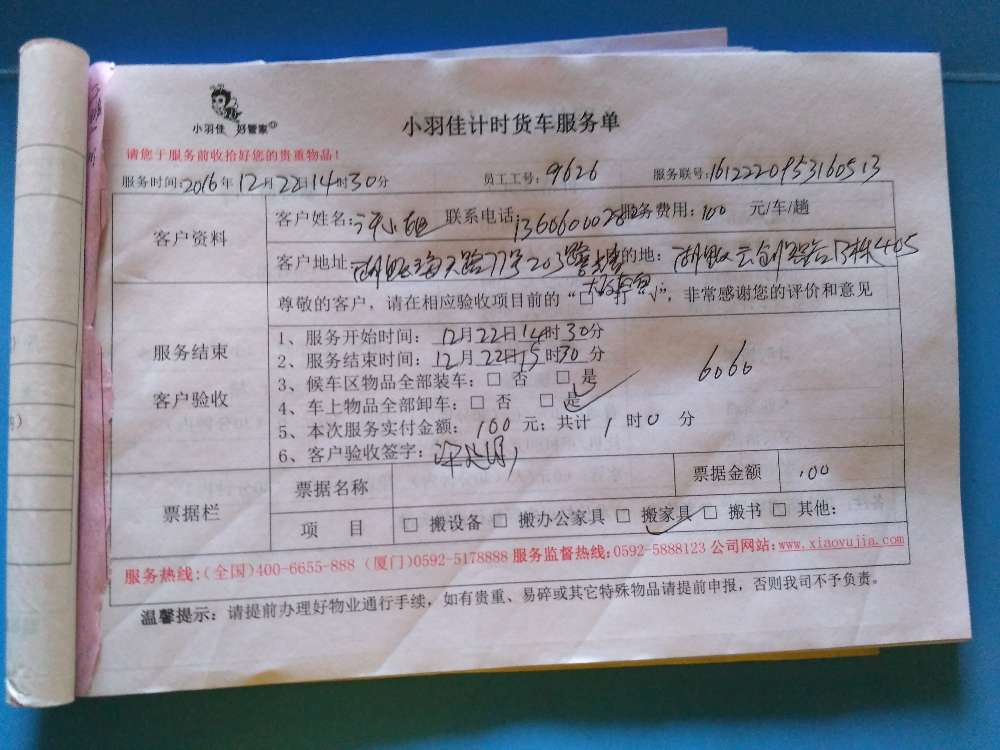 小羽佳 好管家
小羽佳计时货车服务单
请您于服务前收拾好您的贵重物品！
服务时间:2016年12月22日14时30分 员工工号:9626 服务联号:1612220953160513
客户资料
客户姓名: 小姐 联系电话: 服务费用:100 元/车/趟
客户地址: 77号203 的地: 405
尊敬的客户，请在相应验收项目前的“□”打“√”，非常感谢您的评价和意见
服务结束
客户验收
1、服务开始时间：12月22日14时30分
2、服务结束时间：12月22日15时30分
3、候车区物品全部装车：□ 否 □ 是
6060
4、车上物品全部卸车：□ 否 □ 是
5、本次服务实付金额：100 元；共计 1 时 0 分
6、客户验收签字：
票据栏
票据名称 票据金额 100
项 目 □ 搬设备 □ 搬办公家具 □ 搬家具 □ 搬书 □ 其他：
服务热线:(全国)400-6655-888 (厦门)0592-5178888 服务监督热线:0592-5888123 公司网站:www.xiaoyujia.com
温馨提示：请提前办理好物业通行手续，如有贵重、易碎或其它特殊物品请提前申报，否则我司不予负责。